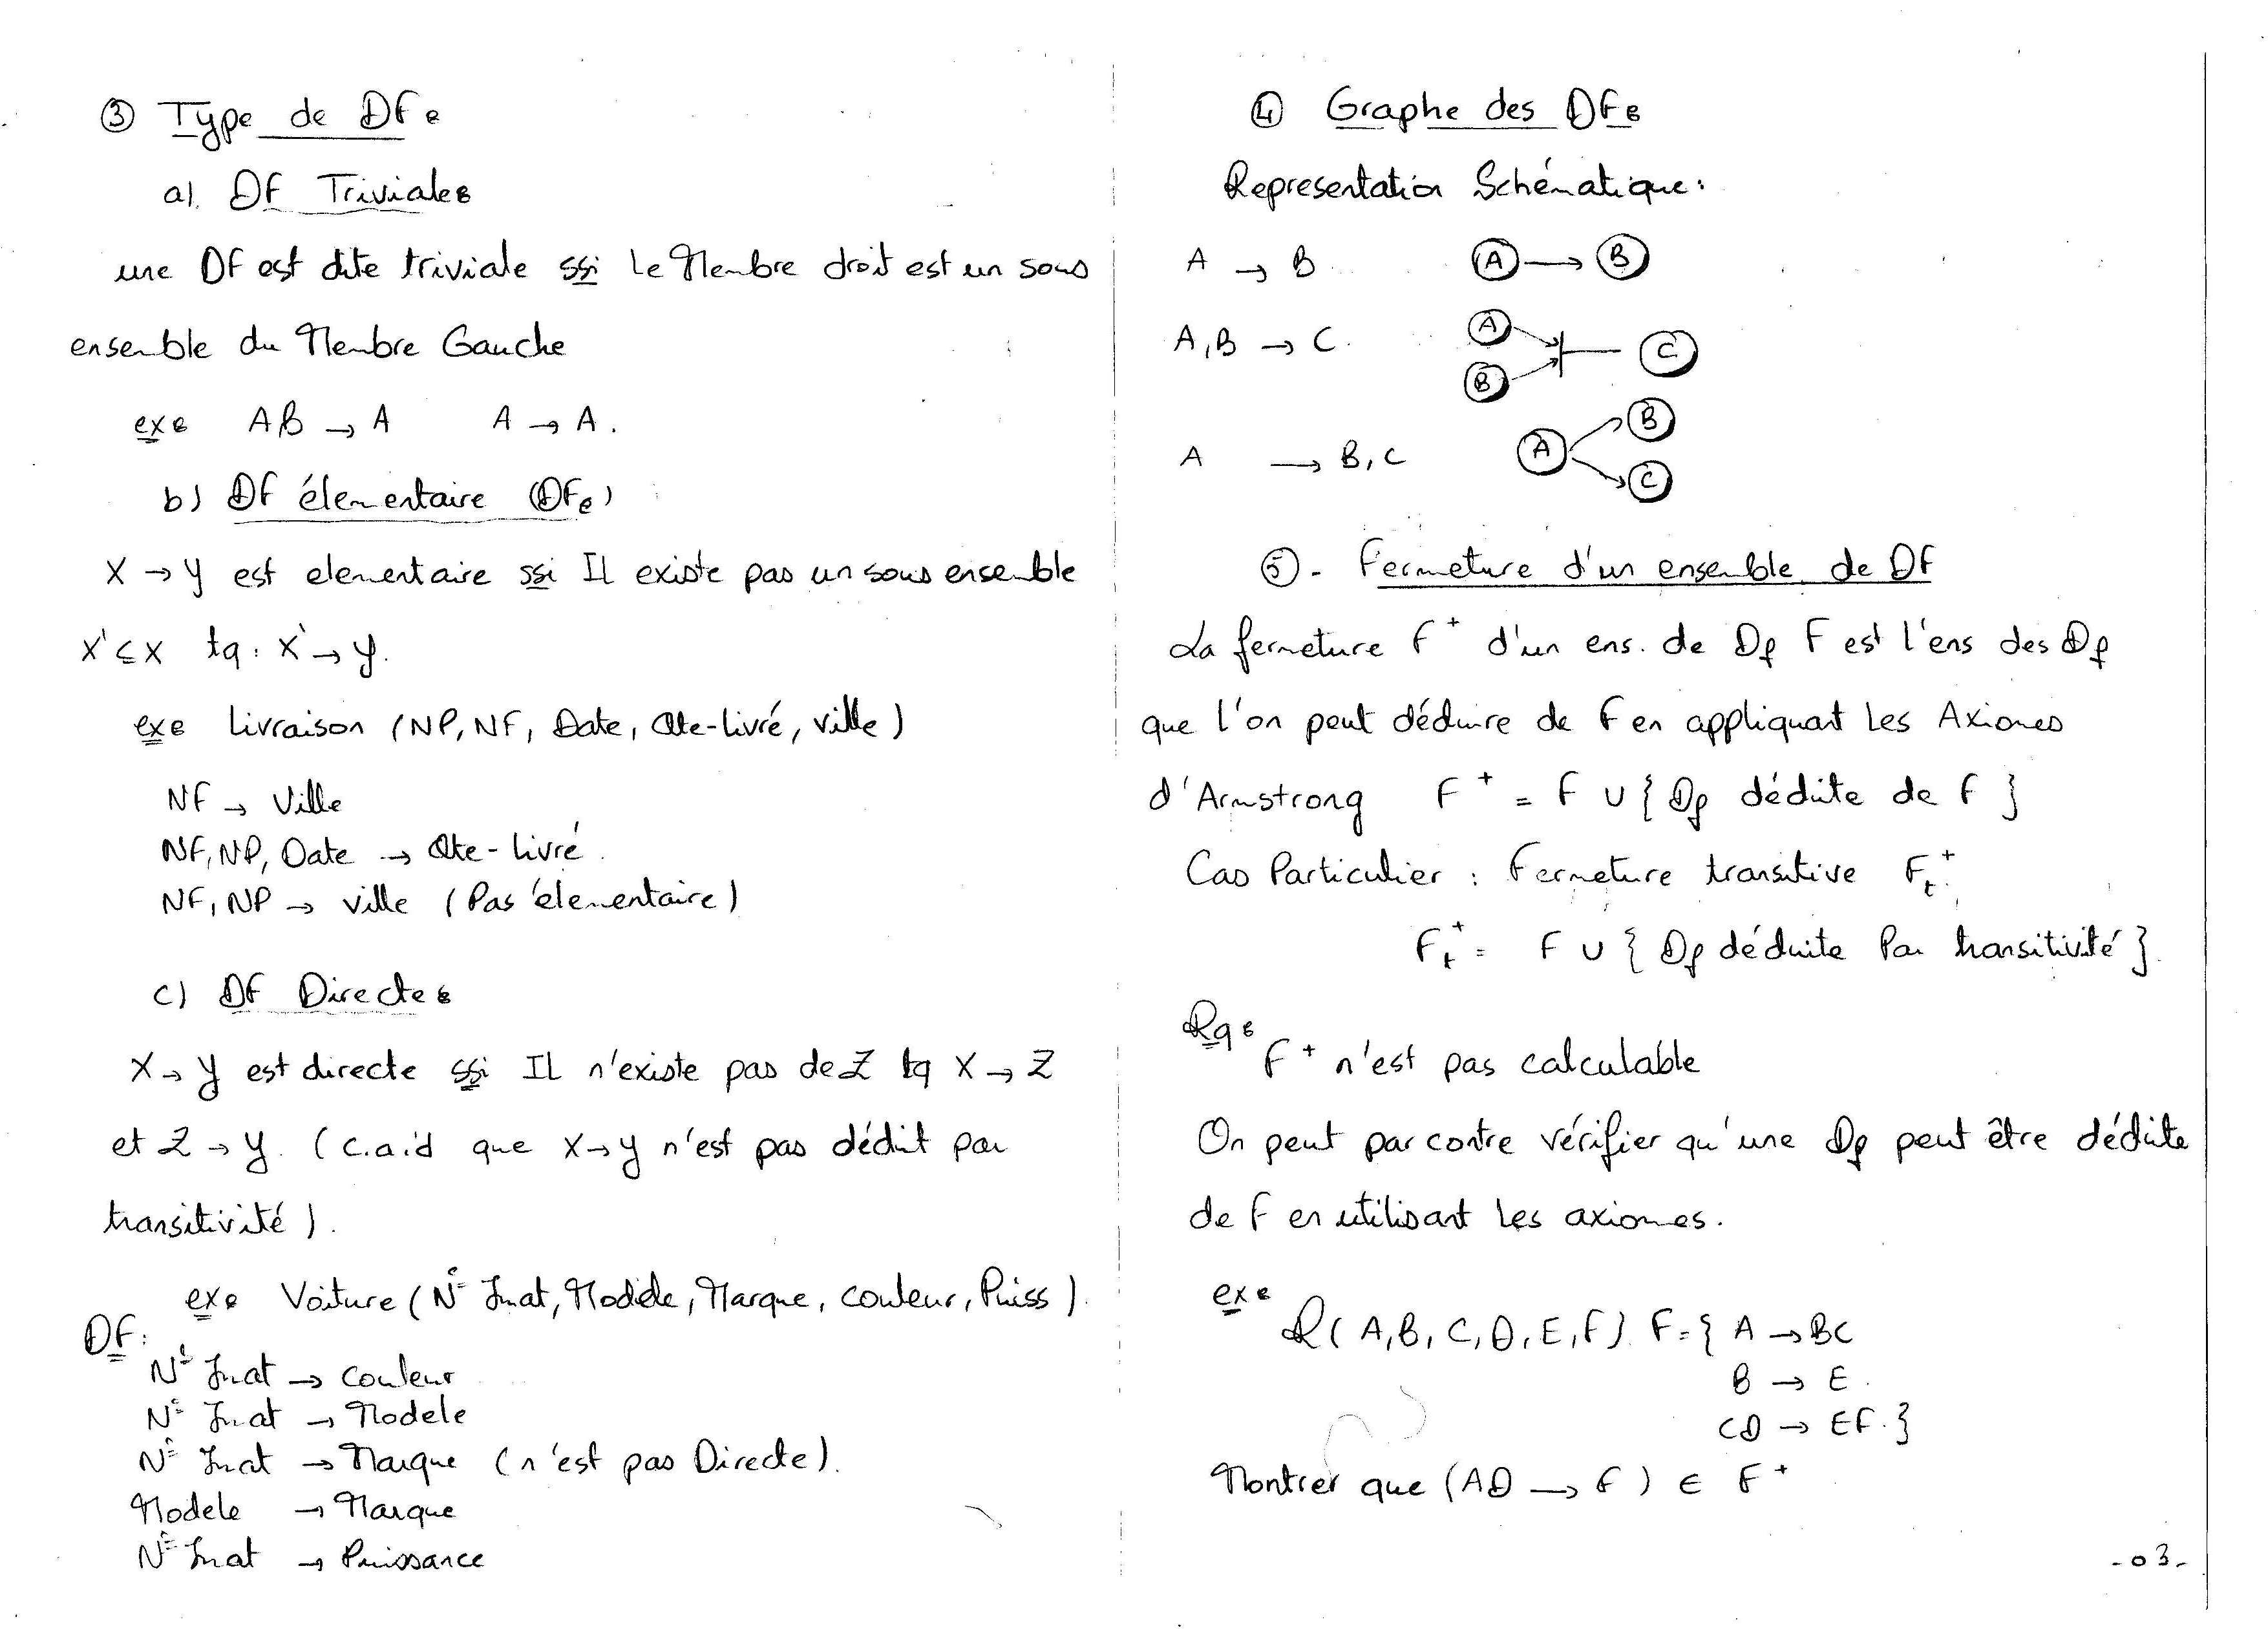 ③ Type de DF :
a). DF Triviales
une DF est dite triviale ssi Le Membre droit est un sous
ensemble du Membre Gauche
ex : AB → A A → A.
b) DF élementaire (DFe)
X → Y est elementaire ssi Il existe pas un sous ensemble
X' ⊆ X tq : X' → Y.
ex : Livraison (NP, NF, Date, Qte-Livré, ville)
NF → Ville
NF, NP, Date → Qte-Livré
NF, NP → ville (Pas élementaire)
c) DF Directe :
X → Y est directe ssi Il n'existe pas de Z tq X → Z
et Z → Y. (c.a.d que X → Y n'est pas déduit par
transitivité).
ex : Voiture (N° Imat, Modèle, Marque, couleur, Puiss).
DF :
N° Imat → couleur
N° Imat → Modele
N° Imat → Marque (n'est pas Directe).
Modele → Marque
N° Imat → Puissance
④ Graphe des DF :
Representation Schématique :
A → B A B
A, B → C. A B C
A → B, C A B C
⑤ - Fermeture d'un ensemble de DF
La fermeture F⁺ d'un ens. de Df F est l'ens des Df
que l'on peut déduire de F en appliquant Les Axiomes
d'Armstrong F⁺ = F ∪ { Df déduite de F }
Cas Particulier : Fermeture transitive Fₜ⁺.
Fₜ⁺ = F ∪ { Df déduite Par transitivité }.
Rq :
F⁺ n'est pas calculable
On peut par contre vérifier qu'une Df peut être déduite
de F en utilisant Les axiomes.
ex :
R( A, B, C, D, E, F ) F = { A → BC
B → E.
CD → EF. }
Montrer que (AD → F) ∈ F⁺
- 03 -